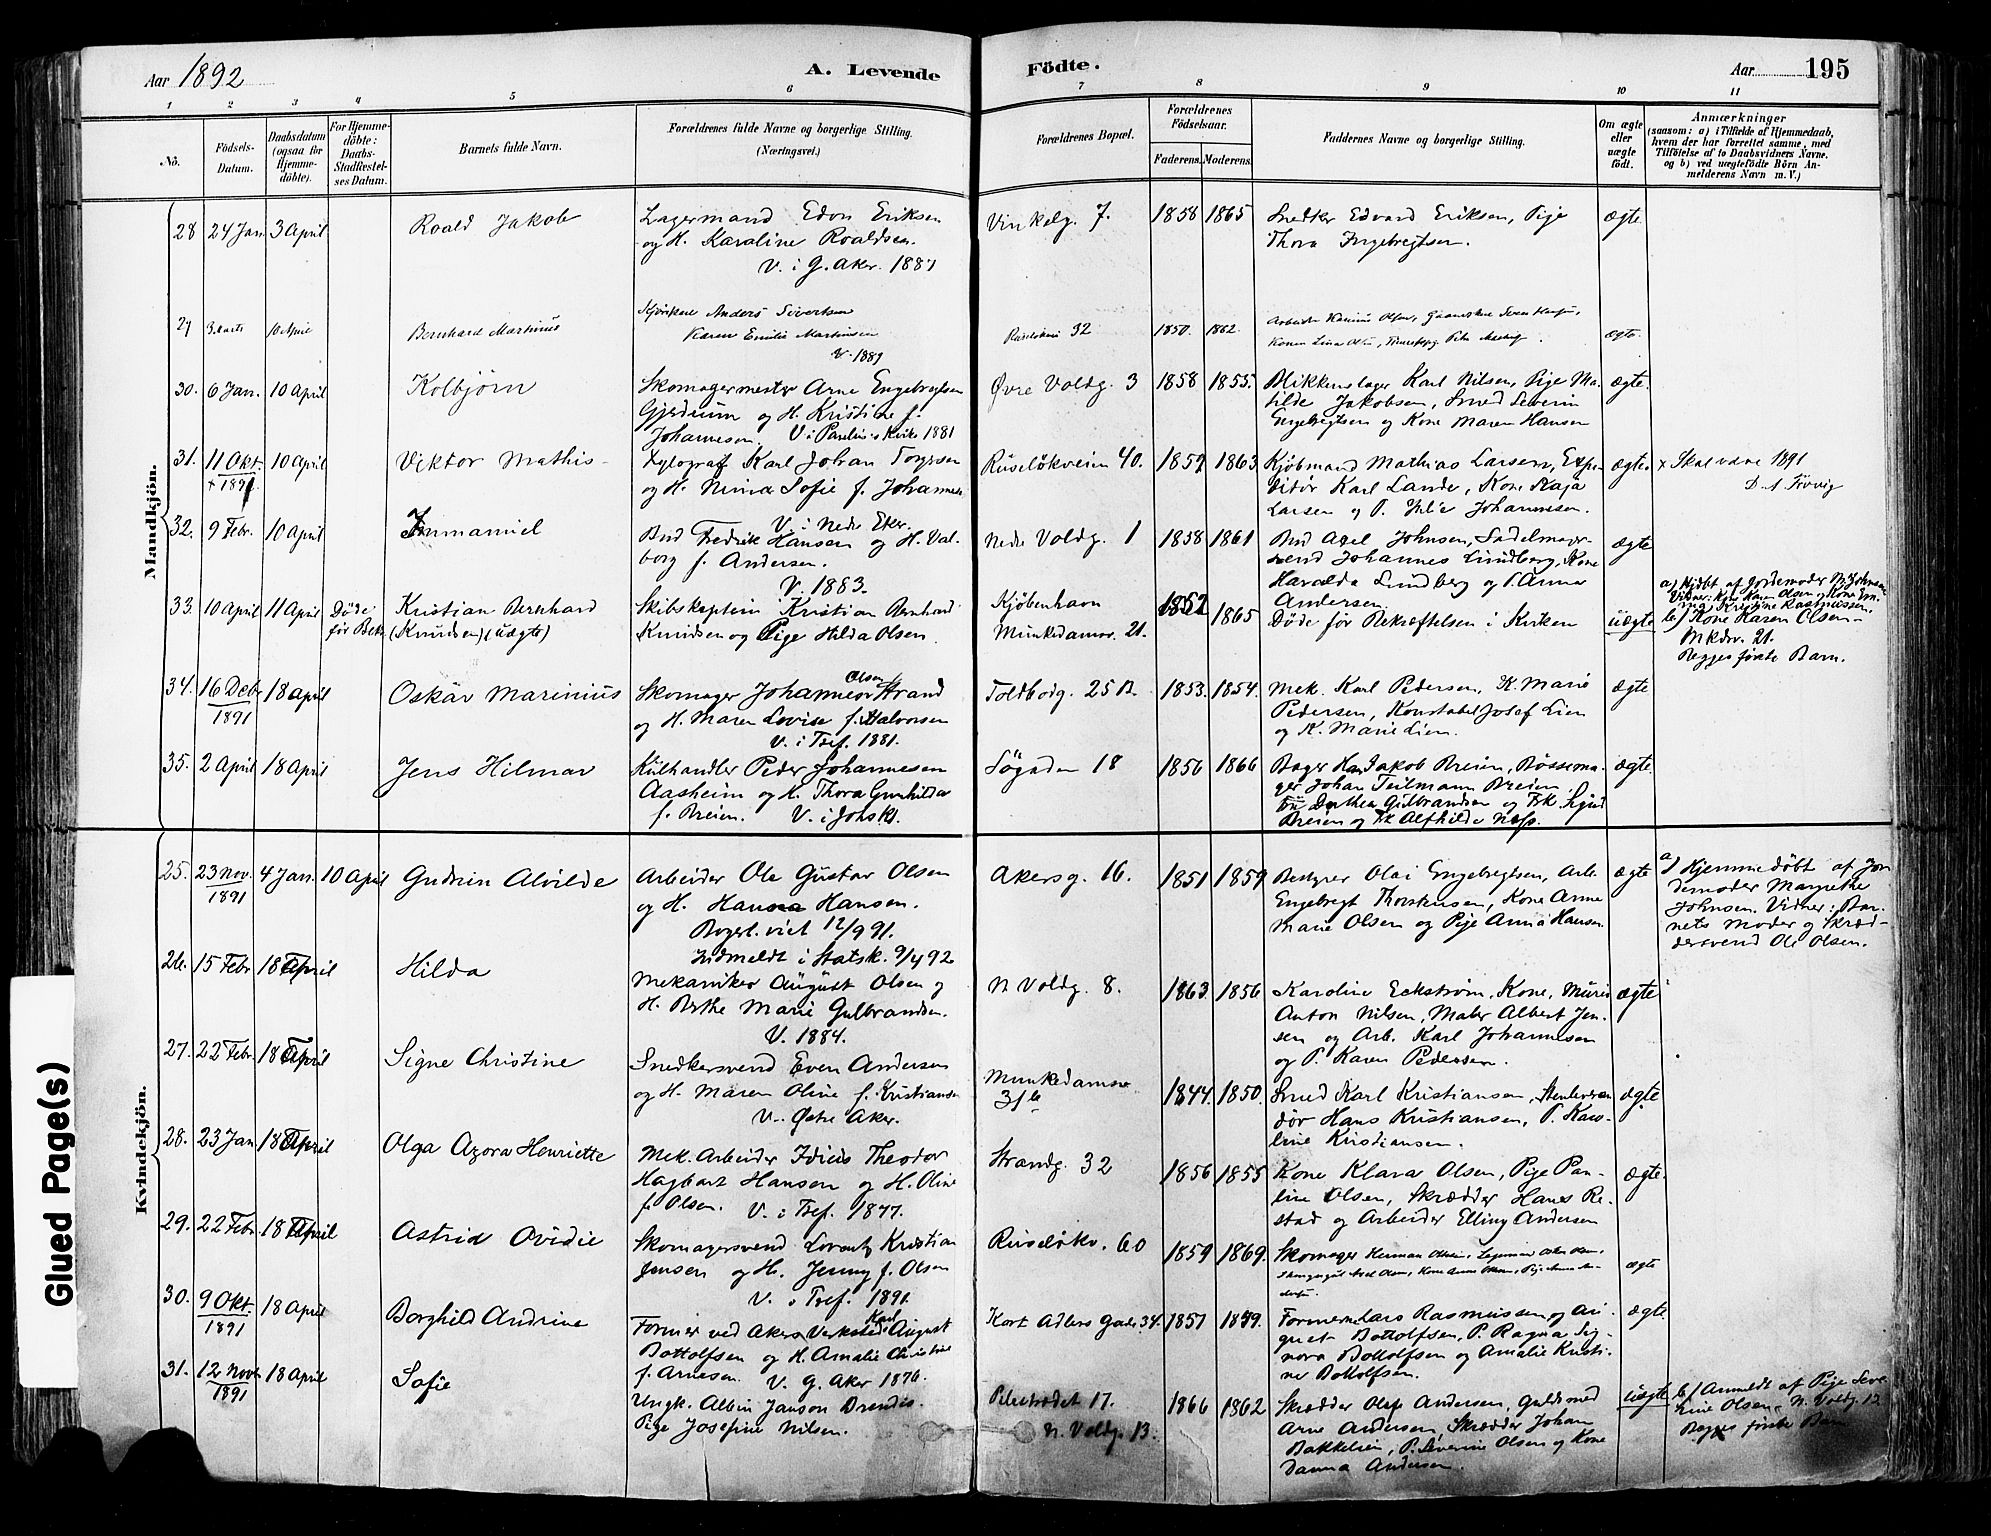 Aar 1892
A. Levende Födte.
Aar 195
1 2 3 4 5 6 7 8 9 10 11
No.
Födsels-Datum.
Daabsdatum (ogsaa for Hjemmedöbte).
For Hjemmedöbte: Daabs-Stadfæstelses Datum.
Barnets fulde Navn.
Forældrenes fulde Navne og borgerlige Stilling.
(Næringsvei.)
Forældrenes Bopæl.
Forældrenes Födselsaar.
Faderens. Moderens.
Faddernes Navne og borgerlige Stilling.
Om ægte eller uægte födt.
Anmærkninger
(saasom: a) i Tilfælde af Hjemmedaab,
hvem der har forrettet samme, med
Tilföielse af to Daabsvidners Navne.
og b) ved uægtefödte Börn Anmelderens Navn m. V.)
Mandkjön.
28 24 Jan. 3 April Roald Jakob
Lagermand Edv. Eriksen
og H. Karoline Roaldsen.
V. i G. Aker. 1887
Vinkelg. 7. 1858 1865
Snedker Edvard Eriksen, Pige
Thora Ingebregtsen.
ægte.
29 10 April Bernhard Martinus
Anders Sivertsen
Karen Emilie Martinsen
V. 1889
32 1850. 1862.
ægte.
30. 6 Jan. 10 April Kolbjörn
Skomagermester Arne Engebregtsen
Gjerdrum og H. Kristine f.
Johannesen. V. i 1881
Øvre Voldg. 3 1858 1855.
Blikkenslager Karl Nilsen, Pige Matilde
Jakobsen, Smed Severin
Engebregtsen og Kone Maren Hansen
ægte.
31. 11 Okt. + 1891. 10 April Viktor Mathis
Xylograf Karl Johan
og H. Nina Sofie f. Johannes
V. i Nedre Eker.
Ruselökveien 40. 1859 1863
Kjöbmand Mathias Larsen, Expeditör
Karl Lande, Kone Kaja
Larsen og P. Johannessen.
ægte.
+ Skal være 1891
32. 9 Febr. 10 April Immanuel
Bud Fredrik Hansen og H. Valborg
f. Andersen.
V. 1883.
Nedre Voldg. 1 1858 1861
Bud Axel Johnsen, Sadelmagersvend
Johannes Lundberg, Kone
Haralda Lundberg og P. Anna
Andersen.
ægte
33. 10 April 11 April Döde för Bek. Kristian Bernhard
(Knudsen) (uægte)
Skibskaptein Kristian Bernhard
Knudsen og Pige Hilda Olsen.
Kjöbenhavn
Munkedamsv. 21. 1852 1865
Döde för Bekræftelsen i Kirken
uægte
a) Hjdbt. af Jordemoder M. Johnsen
Vidner: Kone Karen Olsen, Kone Emma
Kristine Rasmussen.
b) Kone Karen Olsen
Mkdsv. 21.
Begges förste Barn.
34. 16 Debr 1891 18 April Oskar Marinius
Skomager Johannes Olsen Strand
og H. Maren Lovise f. Halvorsen
V. i Tref. 1881.
Toldbodg. 25 B. 1853. 1854.
Mek. Karl Pedersen, K. Marie
Pedersen, Konstabel Josef Lien
og K. Marie Lien.
ægte
35. 2 April 18 April Jens Hilmar
Kulhandler Peder Johannesen
Aasheim og H. Thora Gunhilda
f. Breien. V. i Johsk.
Søgaden 18 1856 1866
Bager Jakob Breien, Bössemager
Johan Teilmann Breien
Dorthea Gulbrandsen og Frk.
Breien og Frk Alfhilde Næss.
ægte.
Kvindekjön.
25. 23 Nov. 1891 4 Jan. 10 April Gudrun Alvilde
Arbeider Ole Gustav Olsen
og H. Hanna Hansen.
Borgerl. viet 12/9 91.
Indmeldt i Statsk. 9/4 92
Akersg. 16. 1851 1859
Bestyrer Olai Engebregtsen, Arb.
Engebregt Thorstensen, Kone Anne
Marie Olsen og Pige Anna Hansen
ægte
a) Hjemmedöbt af Jordemoder
Margrethe
Johnsen. Vidner: Barnets
Moder og Skræddersvend
Ole Olsen.
26. 15 Febr. 18 April Hilda
Mekaniker August Olsen og
H. Berthe Marie Gulbrandsen.
V. 1884.
N. Voldg. 8. 1863 1856
Karoline Eckström, Kone, Murer
Anton Nilsen, Maler Albert Jensen
og Arb. Karl Johannesen
og P. Karen Pedersen.
ægte
27. 22 Febr. 18 April Signe Christine
Snedkersvend Even Andersen
og H. Maren Oline f. Kristiansen
V. Østre Aker.
Munkedamsv.
31b 1844. 1850.
Smed Karl Kristiansen,
Hans Kristiansen, P. Karoline
Kristiansen.
ægte
28. 23 Jan. 18 April Olga Azora Henriette
Mek. Arbeider Theodor
Hagbart Hansen og H. Oline
f. Olsen. V. i Tref. 1877.
Strandg. 32 1856 1855
Kone Klara Olsen, Pige Pauline
Olsen, Skrædder Hans Restad
og Arbeider Elling Andersen
ægte.
29. 22 Febr. 18 April Astrid Ovidie
Skomagersvend Lorentz Kristian
Jensen og H. Jenny f. Olsen
V. i Tref. 1891.
Ruselökv. 60 1859 1869.
Skomager Herman
ægte
30. 9 Okt. 1891 18 April Borghild Andrine
Former ved Akers Verksted Karl August
Bottolfsen og H. Amalie Christine
f. Arnesen. V. G. Aker 1876.
Kort Adlers Gade 34. 1857 1859.
Former Lars Rasmussen, og
Bottolfsen, P. Ragna Signora
Bottolfsen og Amalie Kristine
Bottolfsen.
ægte.
31. 12 Nov. 1891 18 April Sofie
Ungk. Albin Janson
Pige Josefine Nilsen.
Pilestrædet 17.
N. Voldg. 13. 1866 1862
Skrædder Olaf Andersen, Guldsmed
Arne Andersen, Skrædder Johan
Bakkelien, P. Severine Olsen og Kone
Andersen.
uægte
b) Anmeldt af Pige Severine
Olsen, N. Voldg. 13.
Begges förste Barn
Glued Page(s)